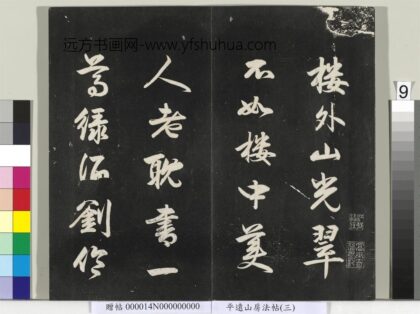 远方书画网-www.yfshuhua.com
楼外山光翠
不如楼中美
人老耽書一
首
劉
9
贈帖 000014N000000000
平遠山房法帖(三)